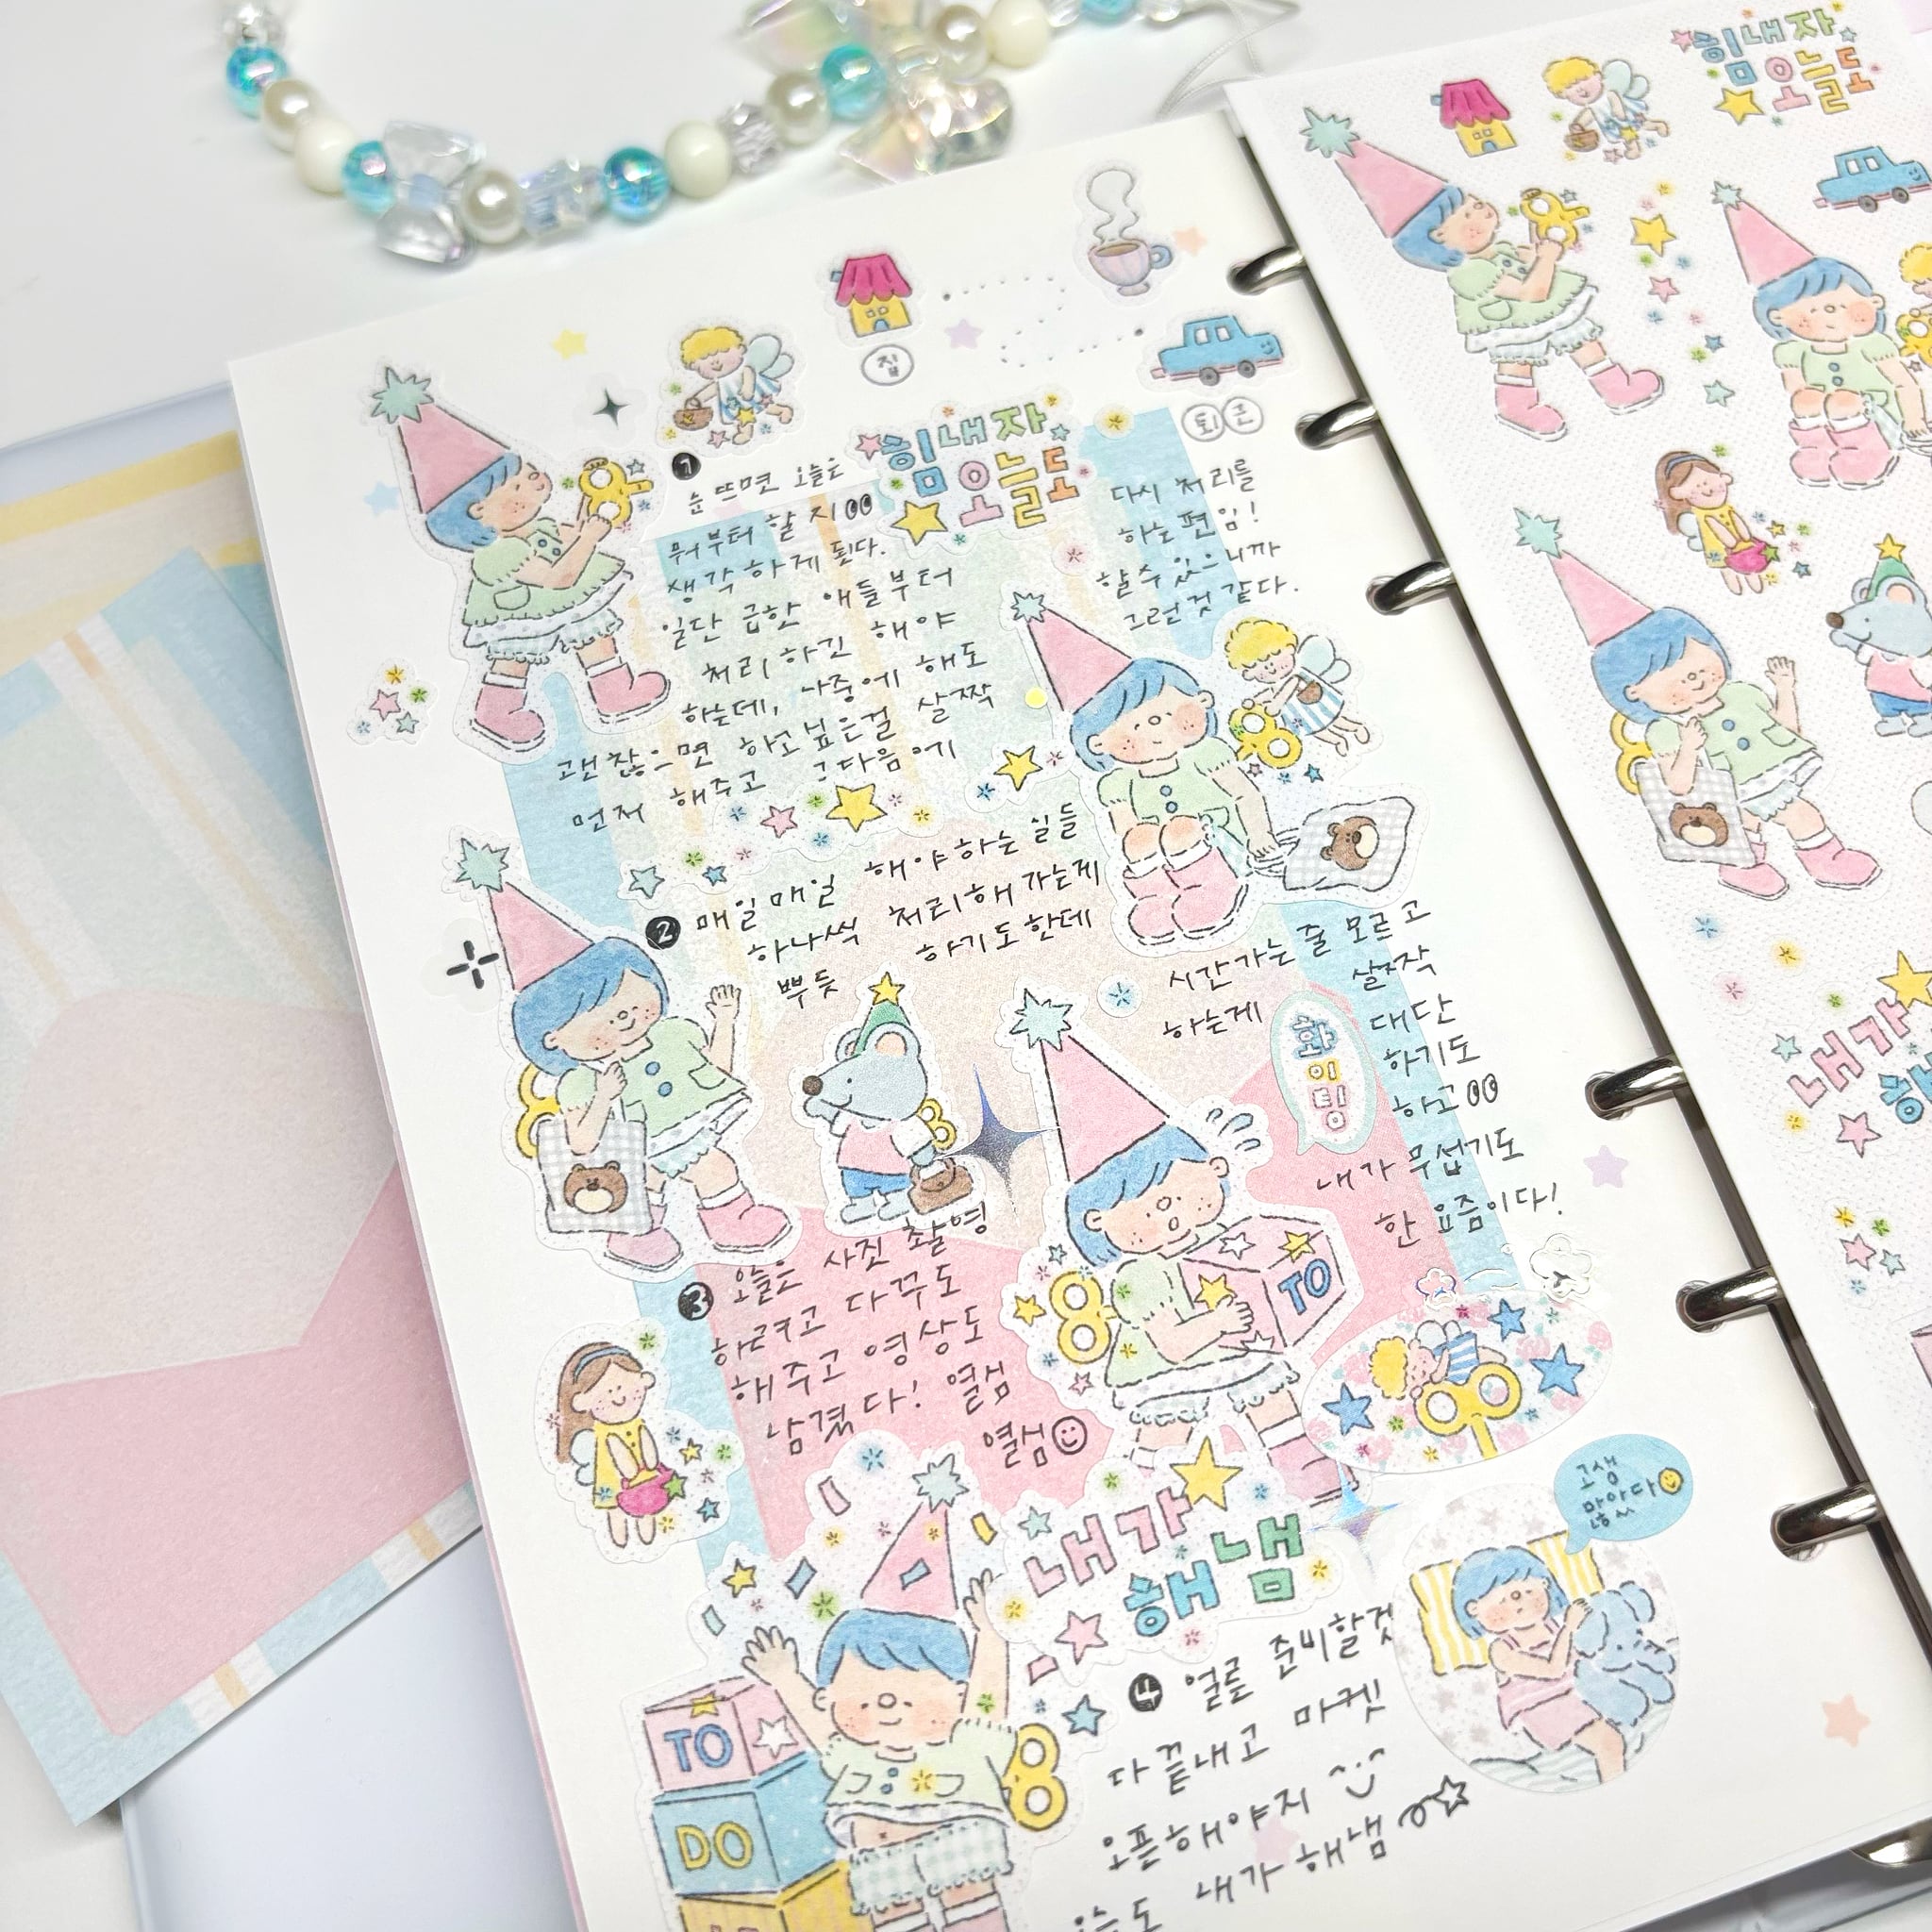 집
퇴근
힘내자
오늘도
1
눈 뜨면 오늘은
뭐부터 할지
생각하게 된다.
일단 급한 애들부터
처리하긴 해야
하는데, 나중에 해도
괜찮으면 하고싶은걸 살짝
먼저 해주고 그다음에
다시 처리를
하는 편임!
할수있으니까
그런것 같다.
2 매일매일 해야하는 일들
하나씩 처리해 가는게
뿌듯 하기도 한데
시간가는 줄 모르고
살짝
하는게
대단
하기도
하고
내가 무섭기도
한 요즘이다!
화이팅
3 오늘은 사진 촬영
하려고 다꾸도
해주고 영상도
남겼다! 열심
열심
TO
내가
해냄
고생
많았다
4 얼른 준비할것
다 끝내고 마켓
오픈해야지
오늘도 내가해냄
TO
DO
힘내자
오늘도
내가
해